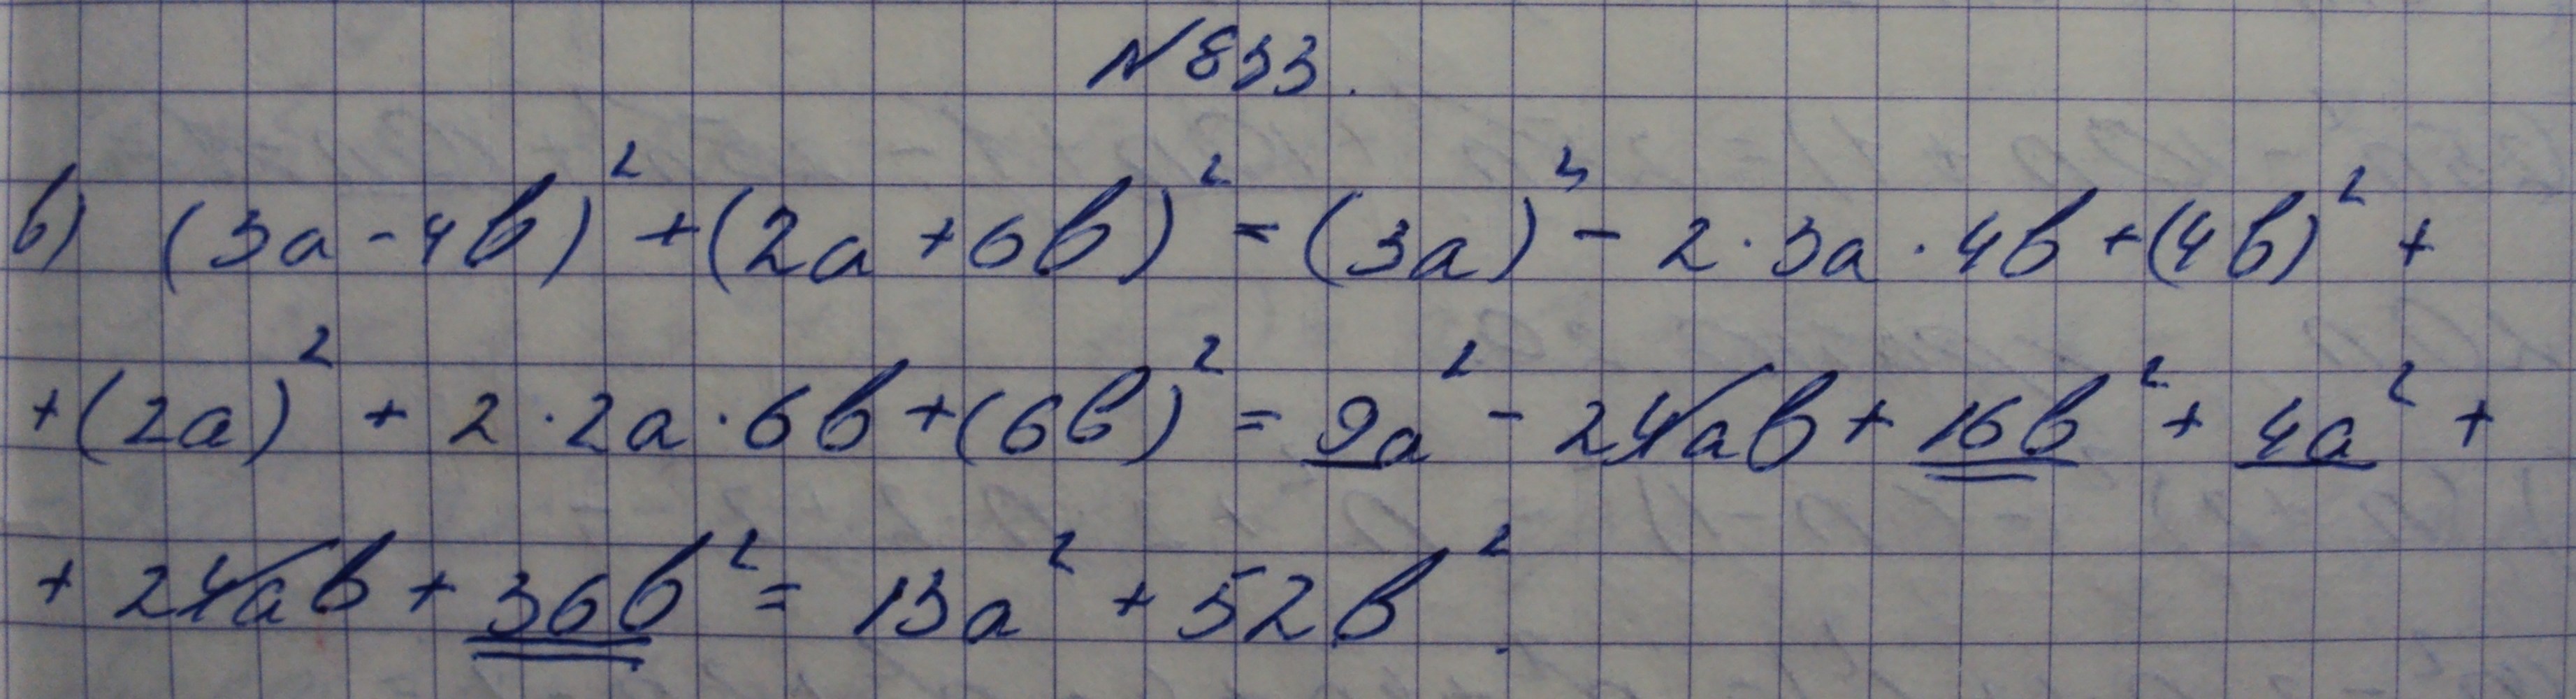 № 833.
в) (3a - 4b)² + (2a + 6b)² = (3a)² - 2 · 3a · 4b + (4b)² +
+ (2a)² + 2 · 2a · 6b + (6b)² = 9a² - 24ab + 16b² + 4a² +
+ 24ab + 36b² = 13a² + 52b².